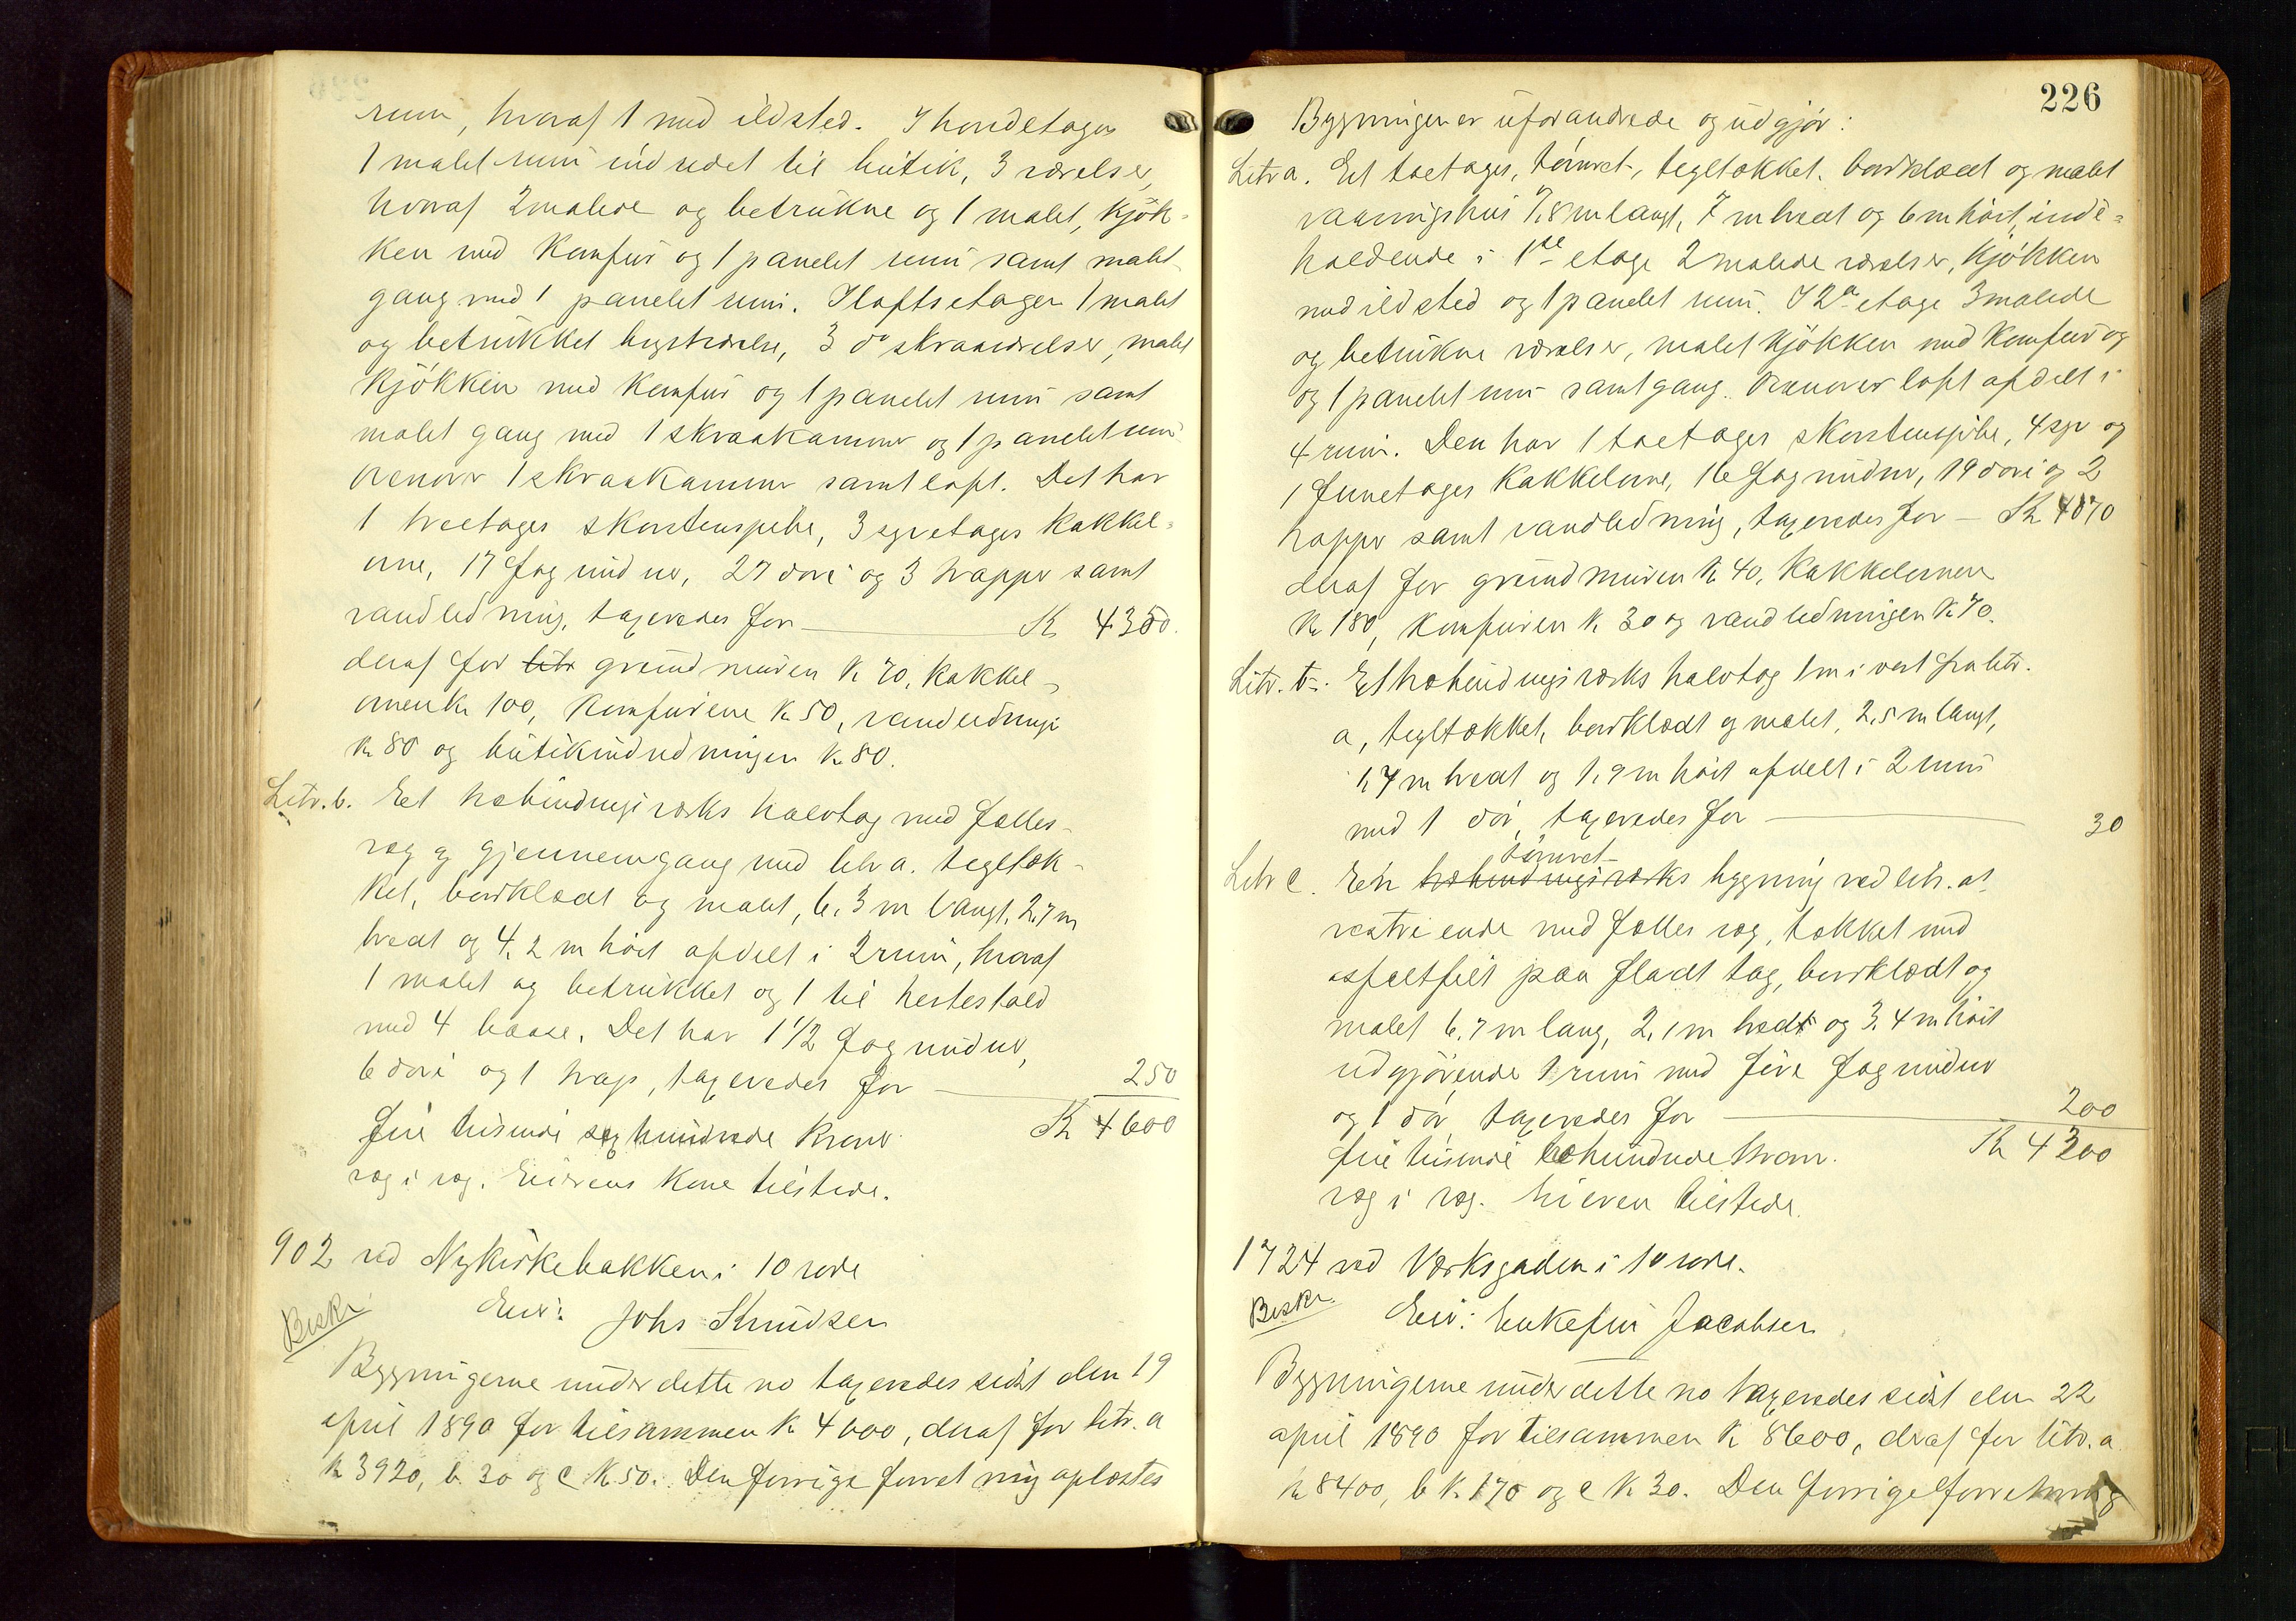 rum, hvoraf 1 med ildsted. I hovedetagen
1 malet rum indredet til butik, 3 værelser,
hvoraf 2 malede og betrukne og 1 malet, kjök-
ken med komfur og 1 panelet rum samt malet
gang med 1 panelet rum. I loftsetagen 1 malet
og betrukket kvistværelse, 3 do skraaværelser, malet
kjökken med komfur og 1 panelet rum samt
malet gang med 1 skraakammer og 1 panelet rum
Ovenover 1 skraakammer samt loft. Det har
1 treetages skorstenspibe, 3 syvetages kakkel-
ovne, 17 fag vinduer, 27 döre og 3 trapper samt
vandledning, taxeredes for — K 4350.
deraf for litr grundmuren K 70, kakkel-
ovnen Kr 100, komfurene K 50, vandledninge
Kr 80 og butikindredningen K 80.
Litr. b. Et utbindingsverks halvtag med fælles-
væg og gjennemgang med litr a. tegltæk-
ket, bordklædt og malet, 6,3 m langt, 2,7 m
bredt og 4,2 m höit afdelt i 2 rum, hvoraf
1 malet og betrukket og 1 til hestestald
med 4 baase. Det har 1 1/2 fag vinduer,
6 döre og 1 trap, taxeredes for — 250
fire tusinde sex hundrede kroner K 4600
væg i væg. Eierens kone tilstede.
902 ved Nykirkebakken i 10 rode
Beskr. Eier: Johs Knudsen
Bygningerne under dette no taxeredes sidst den 19
april 1890 for tilsammen K 4000, deraf for litr. a
K 3920, b 30 og c K 50. Den forrige forretning oplæstes
226
Bygningen er uforandrede og udgjör:
Litr a. Et toetages, tömret, tegltækket, bordklædt og malet
vaaningshus 7,8 m langt, 7 m bredt og 6 m höit, inde-
holdende i 1ste etage 2 malede værelser, kjökken
med ildsted og 1 panelet rum. I 2den etage 3 malede
og betrukne værelser, malet kjökken med komfur og
og 1 panelet rum samt gang. Ovenover loft afdelt i
4 rum. Den har 1 toetages skorstenspibe, 4 syv og
1 femetages kakkelovne, 16 fag vinduer, 19 döre og 2
trapper samt vandledning, taxeredes for — K 4070
deraf for grundmuren K 40, kakkelovnene
K 180, komfuren K 30 og vandledningen K 70.
Litr. b. Et utbindingsverks halvtag 1 m i vest fra litr.
a, tegltækket, bordklædt og malet, 2,5 m langt,
1,7 m bredt og 1,9 m höit afdelt i 2 rum
med 1 dör, taxeredes for — 30
tömret
Litr c. En utbindingsverks bygning ved litr. as
vestre ende med fælles væg, tækket med
asfaltfilt paa fladt tag, bordklædt og
malet 6,7 m lang, 2,1 m bredt og 3,4 m höit
udgjörende 1 rum med fire fag vinduer
og 1 dör, taxeredes for — 200
fire tusinde to hundrede kroner. K 4300
væg i væg. Eieren tilstede.
1724 ved Verksgaden i 10 rode.
Beskr. Eier: Enkefru Jacobsen
Bygningerne under dette no taxeredes sidst den 22
april 1890 for tilsammen K 8600, deraf for litr. a
K 8400, b K 170 og c K 30. Den forrige forretning